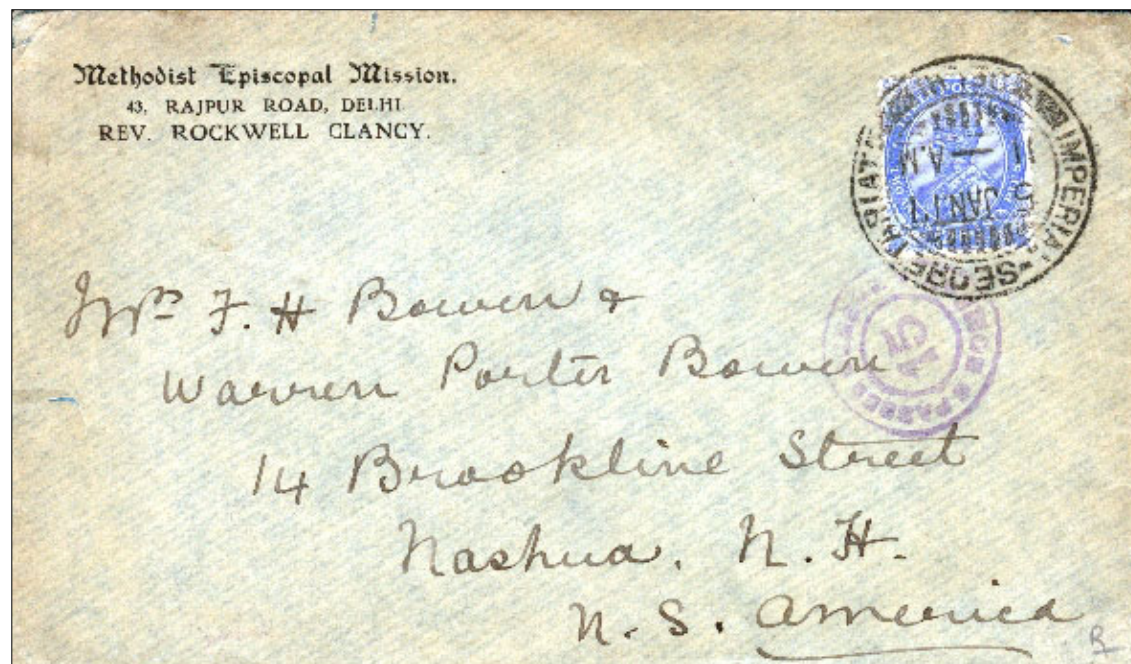 Methodist Episcopal Mission.
43, RAJPUR ROAD, DELHI
REV. ROCKWELL CLANCY.
IMPERIAL-SECRETARIAT
A.M
5 JAN.17
PASSED
15
Mrs F. H Bowen &
Warren Porter Bowen
14 Brookline Street
Nashua. N. H.
U. S. America
R